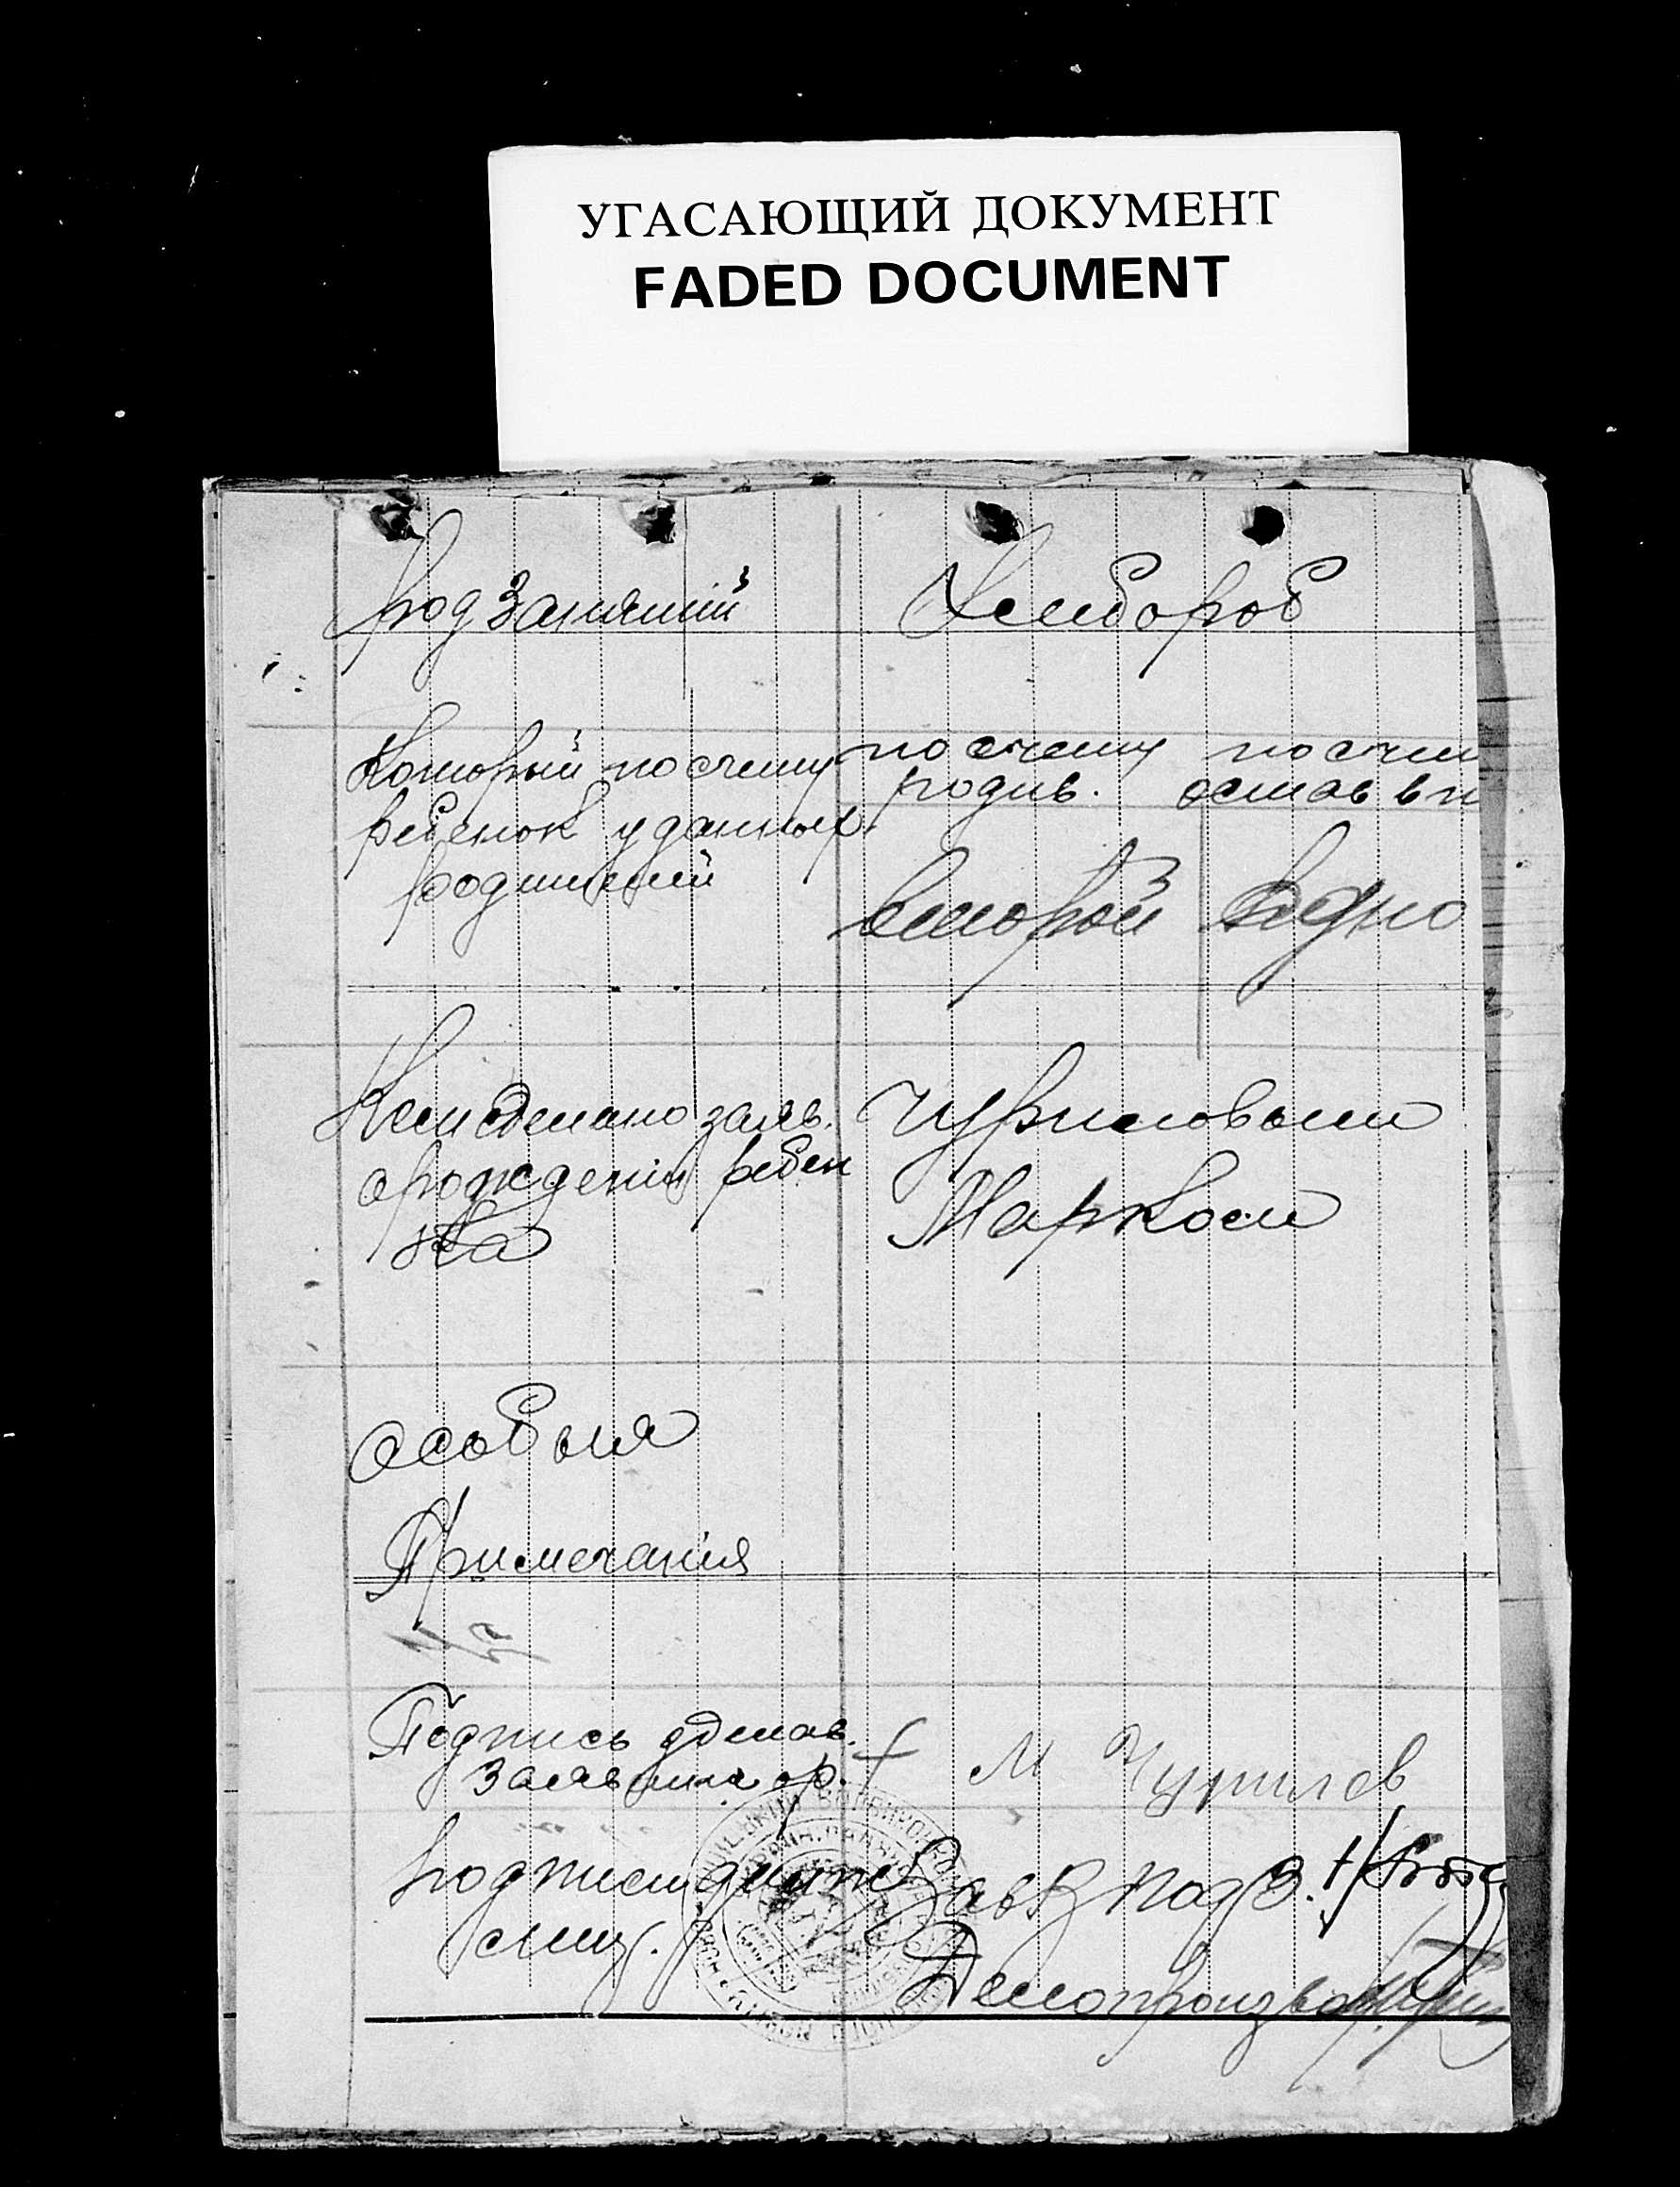 УГАСАЮЩИЙ ДОКУМЕНТ
FADED DOCUMENT
род занятий
Хлебороб
Который по счету
ребенок у данных
родителей
по счету
родив.
по счет
оставв
второй
Кем сделано заяв.
о рождении ребен
ка
Чуриловым
Марком
Особыя
Примечания
Подпись сделав.
заявление о р.
М Чурилов
Подписи
Зав. Подз.
Делопроизвод